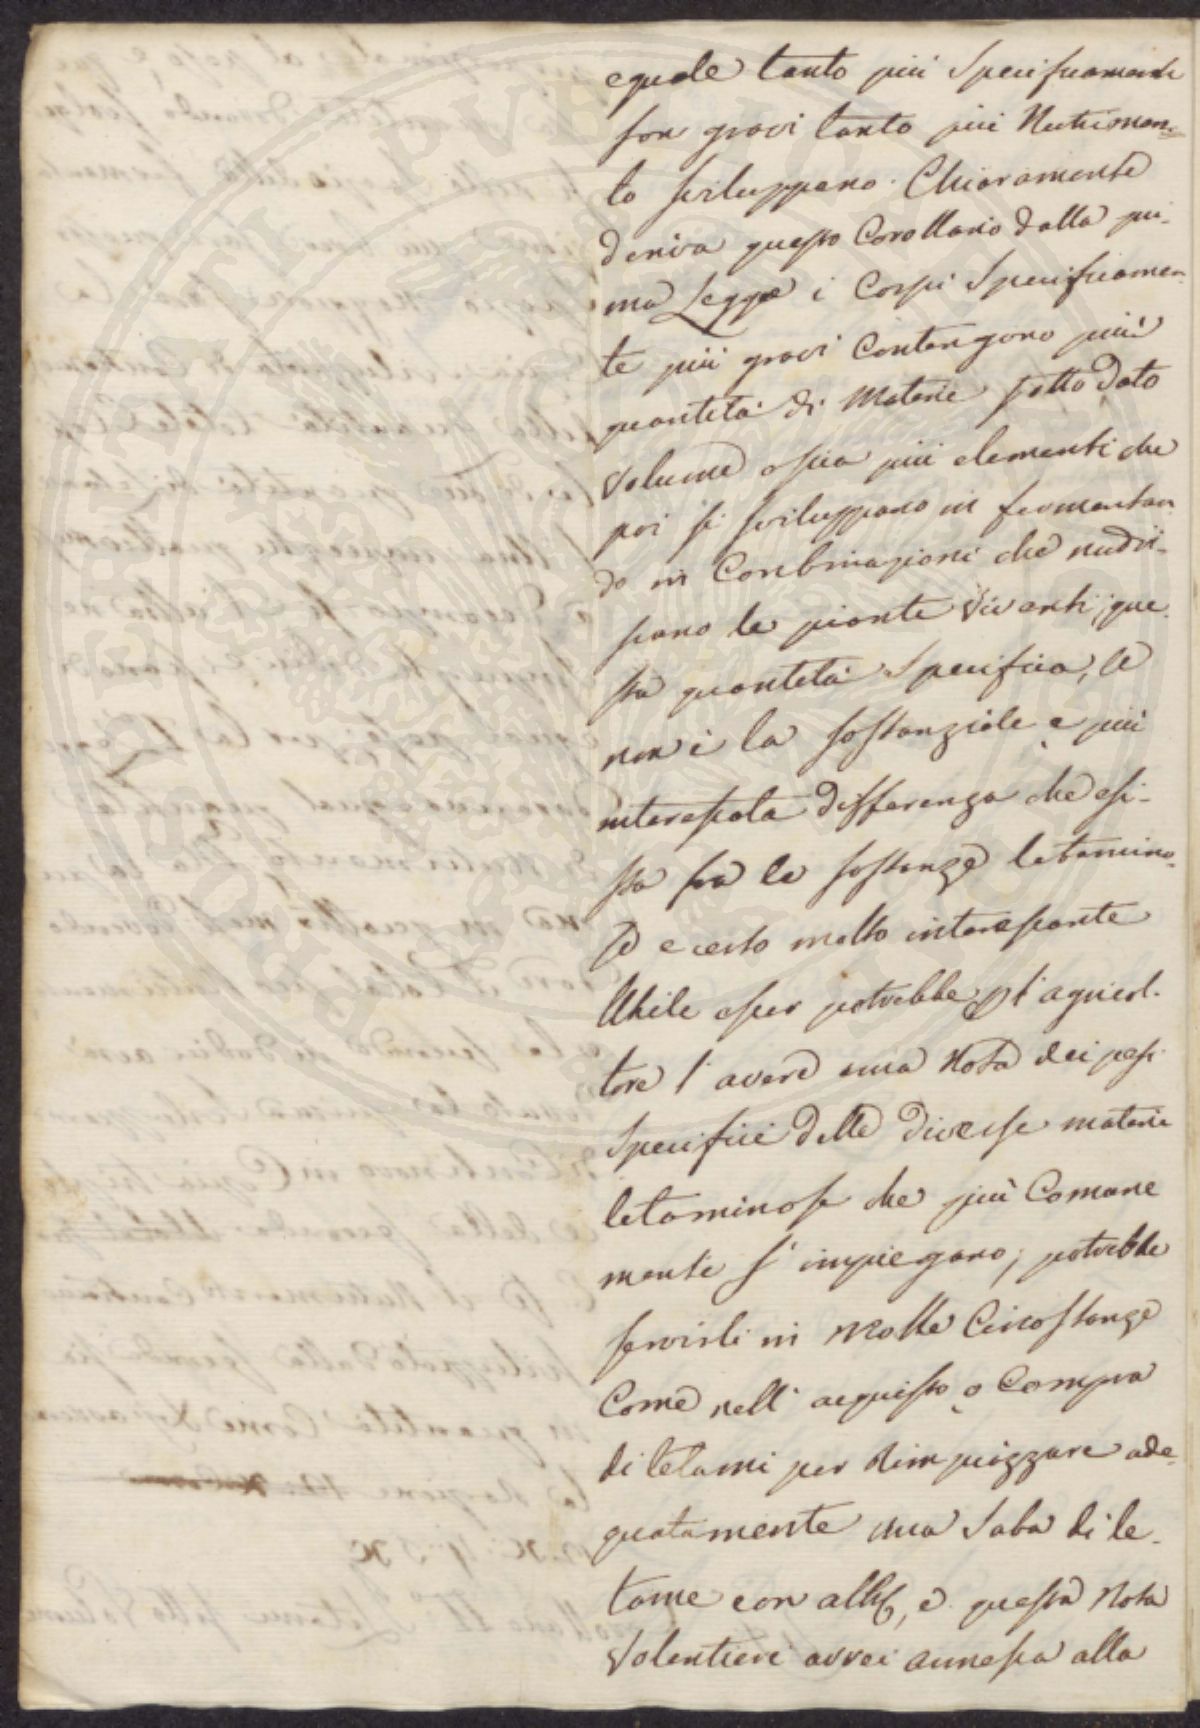 eguale tanto più Specificamente
son gravi tanto più Nutrimen-
to sviluppano. Chiaramente
deriva questo Corollario dalla pri-
ma Legge i Corpi Specificamen
te più gravi Contengono più
quantità di Materie sotto dato
Volume ossia più elementi che
poi si sviluppano in fermentan
do in Combinazioni che nudri-
scano le piante viventi; que
sta quantità Specifica, se
non è la sostanziale e più
interessata differenza che esi-
sta fra le sostanze letamino-
se e certo molto interessante
Utile esser potrebbe pl'agricol-
tore l'avere una Nota dei pesi
Specifici delle diverse materie
letaminose che più Comune
mente s'impiegano; potrebbe
servirli in Molte Circostanze
Come nell'acquisto o Compra
di letami per rimpiazzare ade-
quatamente una Soba di le-
tame con altro, e questa Nota
Volentieri avrei annessa alla